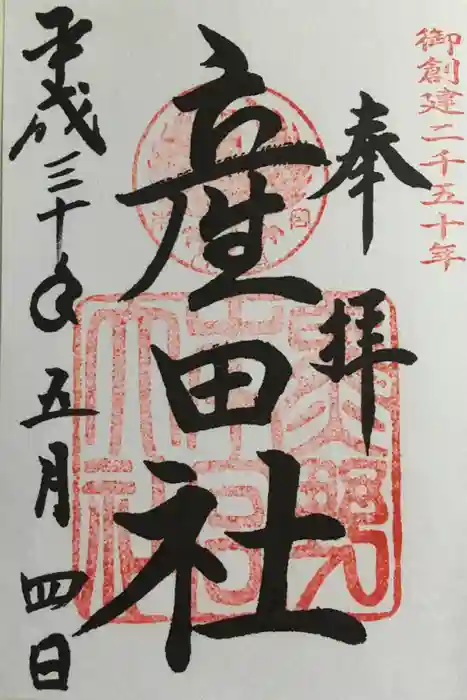 御創建二千五十年
奉拝
産田社
平成三十年五月四日